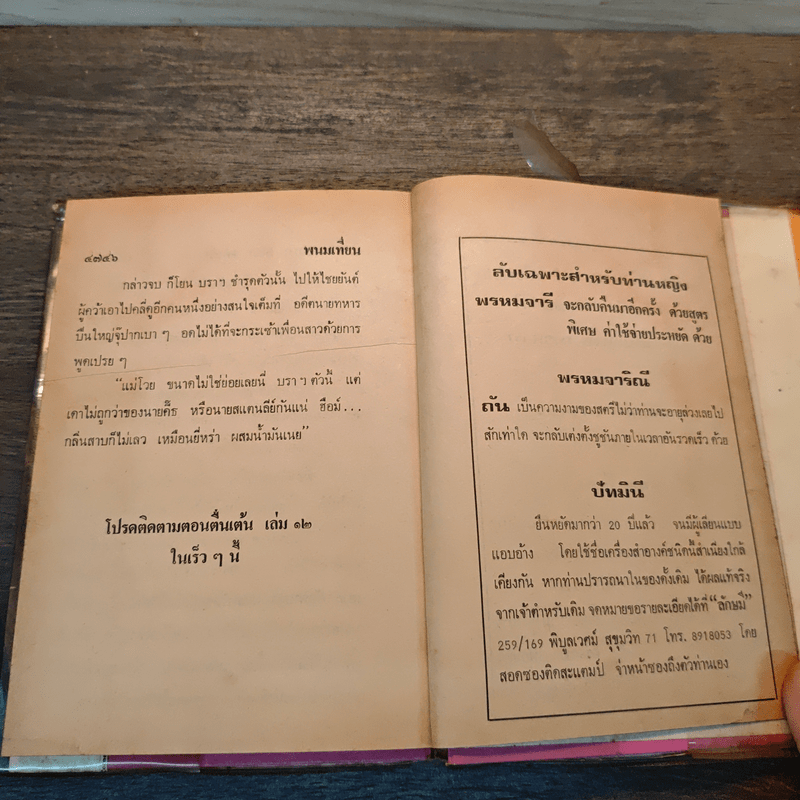 ๔๗๕๖ พนมเทียน
กล่าวจบ ก็โยน บราฯ ชำรุดตัวนั้น ไปให้ไชยยันต์
ผู้คว้าเอาไปคลี่ดูอีกคนหนึ่งอย่างสนใจเต็มที่ อดีตนายทหาร
ปืนใหญ่จุ๊ปากเบา ๆ อดไม่ได้ที่จะกระเซ้าเพื่อนสาวด้วยการ
พูดเปรย ๆ
“แม่โวย ขนาดไม่ใช่ย่อยเลยนี่ บราฯ ตัวนี้ แต่
เดาไม่ถูกว่าของนายคี้ธ หรือนายสแตนลีย์กันแน่ ฮือม์...
กลิ่นสาบก็ไม่เลว เหมือนยี่หร่า ผสมน้ำมันเนย”
โปรดติดตามตอนตื่นเต้น เล่ม ๑๒
ในเร็ว ๆ นี้
ลับเฉพาะสำหรับท่านหญิง
พรหมจารี จะกลับคืนมาอีกครั้ง ด้วยสูตร
พิเศษ ค่าใช้จ่ายประหยัด ด้วย
พรหมจาริณี
ถัน เป็นความงามของสตรีไม่ว่าท่านจะอายุล่วงเลยไป
สักเท่าใด จะกลับเต่งตั้งชูชันภายในเวลาอันรวดเร็ว ด้วย
ปัทมินี
ยืนหยัดมากว่า 20 ปีแล้ว จนมีผู้เลียนแบบ
แอบอ้าง โดยใช้ชื่อเครื่องสำอางค์ชนิดนี้สำเนียงใกล้
เคียงกัน หากท่านปรารถนาในของดั้งเดิม ได้ผลแท้จริง
จากเจ้าตำหรับเดิม จดหมายขอรายละเอียดได้ที่ “ลักษมี”
259/169 พิบูลเวศม์ สุขุมวิท 71 โทร. 8918053 โดย
สอดซองติดสะแตมป์ จ่าหน้าซองถึงตัวท่านเอง